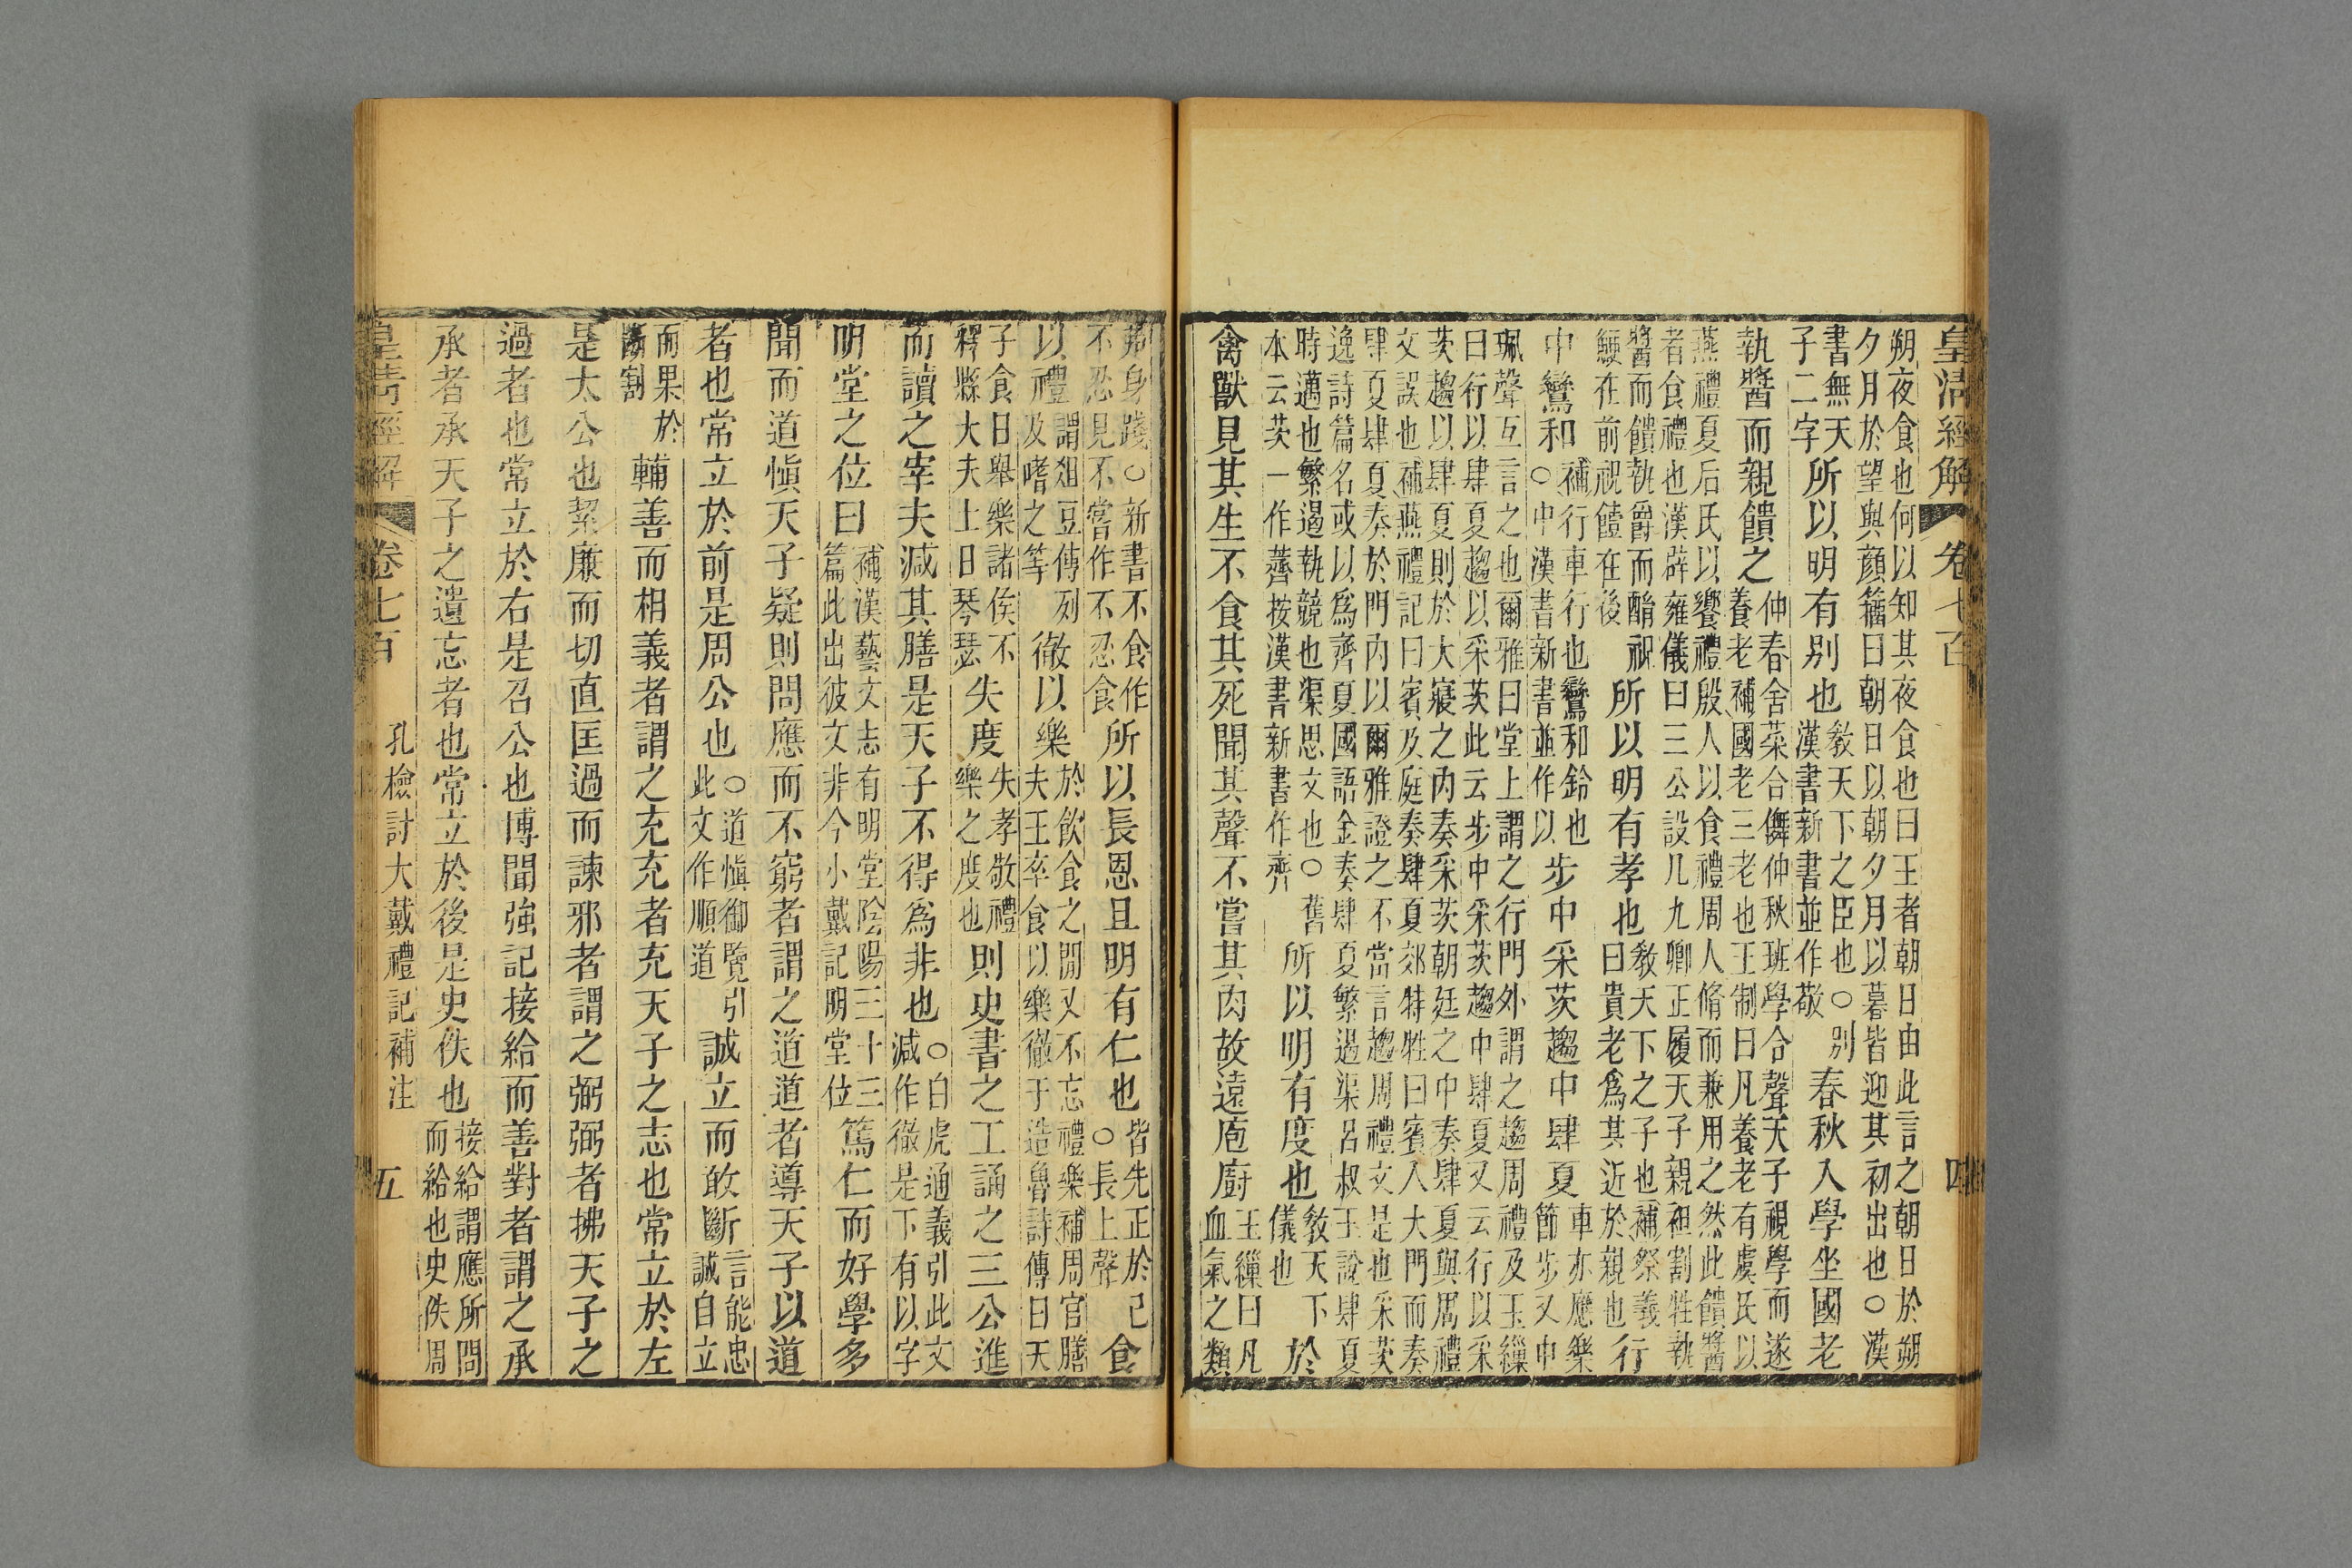 皇清經解 卷七百 四
朔夜食也何以知其夜食也曰王者朝日由此言之朝日於朔
夕月於望與顏籀曰朝日以朝夕月以暮皆迎其初出也○漢
書無天子二字所以明有別也教天下之臣也○別漢書新書並作敬春秋入學坐國老
執醬而親饋之仲春舍菜合儛仲秋班學合聲天子視學而遂養老補國老三老也王制曰凡養老有虞氏以
燕禮夏后氏以饗禮殷人以食禮周人脩而兼用之然此饋醬
者食禮也漢辟雍儀曰三公設几九卿正履天子親袒割牲執
醬而饋執爵而酳祝鯁在前祝饐在後所以明有孝也教天下之子也補祭義曰貴老爲其近於親也行
中鸞和補行車行也鸞和鈴也○中漢書新書並作以步中采茨趨中肆夏車亦應樂節步又中
珮聲互言之也爾雅曰堂上謂之行門外謂之趨周禮及玉繅
曰行以肆夏趨以采茨此云步中采茨趨中肆夏又云行以采
茨趨以肆夏則於大寢之內奏采茨朝廷之中奏肆夏與周禮
文誤也補燕禮記曰賓及庭奏肆夏郊特牲曰賓入大門而奏
肆夏肆夏奏於門內以爾雅證之不當言趨周禮文是也采茨
逸詩篇名或以爲齊夏國語金奏肆夏繁遏渠呂叔玉說肆夏
時邁也繁遏執競也渠思文也○舊本云茨一作薺按漢書新書作齊所以明有度也教天下儀也於
禽獸見其生不食其死聞其聲不嘗其肉故遠庖廚玉繅曰凡血氣之類
弗身踐○新書不食作不忍見不嘗作不忍食所以長恩且明有仁也皆先正於己○長上聲食
以禮謂俎豆傳列及嗜之等徹以樂於飲食之閒又不忘禮樂補周官膳夫王卒食以樂徹于造魯詩傳曰天
子食日舉樂諸侯不釋縣大夫士日琴瑟失度失孝敬禮樂之度也則史書之工誦之三公進
而讀之宰夫減其膳是天子不得爲非也○白虎通義引此文減作徹是下有以字
明堂之位曰補漢藝文志有明堂陰陽三十三篇此出彼文非今小戴記明堂位篤仁而好學多
聞而道愼天子疑則問應而不窮者謂之道道者導天子以道
者也常立於前是周公也○道愼御覽引此文作順道誠立而敢斷言能忠誠自立
而果於斷割輔善而相義者謂之充充者充天子之志也常立於左
是太公也絜廉而切直匡過而諫邪者謂之弼弼者拂天子之
過者也常立於右是召公也博聞強記接給而善對者謂之承
承者承天子之遺忘者也常立於後是史佚也接給謂應所問而給也史佚周
皇清經解 卷七百 孔檢討大戴禮記補注 五